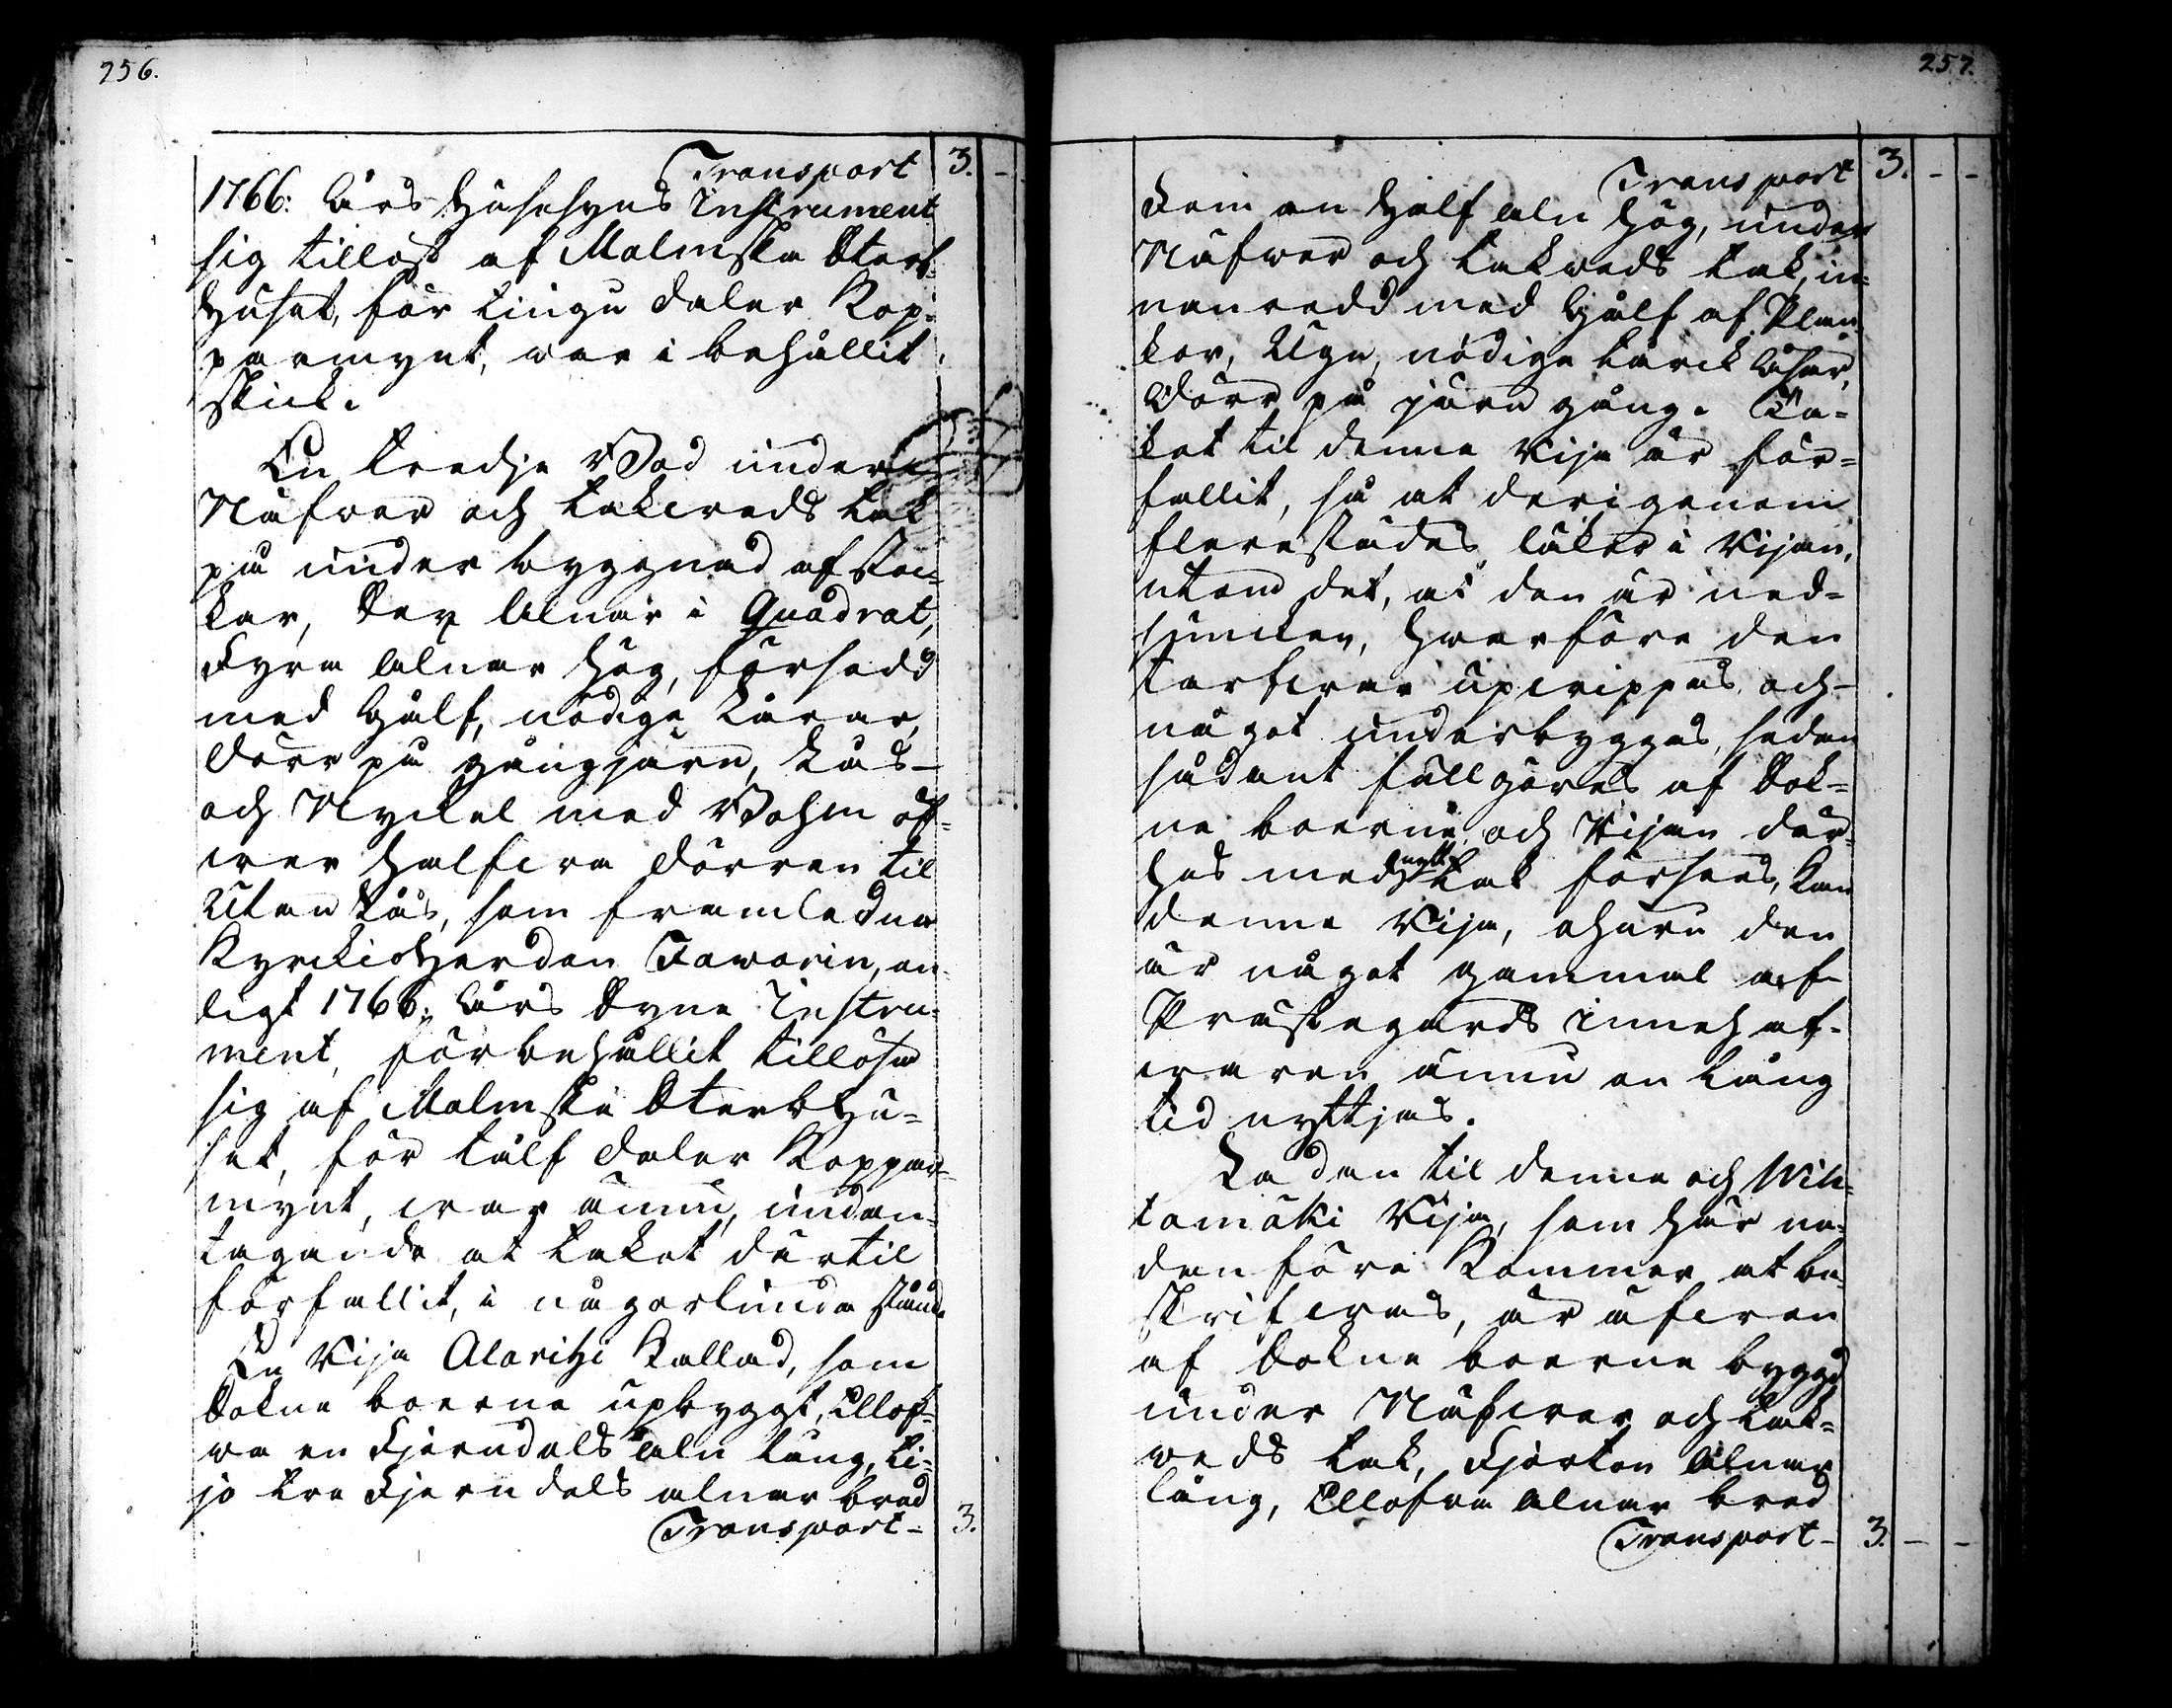 256.
Transport 3. -
1766: Års Husesyns Instrument
sig tillöst af Malmska Sterb-
huset, för tiugu daler Kop-
parmynt, war i behållit
skick.
En tredje Bod under
Näfwer och takweds tak
på under byggnad af stoc-
kar, Sex Alnar i Quadrat,
Fyra alnar hög, försedd
med Gålf, nödige Lårar,
dörr på gångjärn, Lås
och Nyckel med Bohm öf-
wer halfwa dörren til
Utan Lås, som framledne
Kyrckioherden Faworin, en-
ligt 1766: Års Syne Instru-
ment, förbehållit tillösa
sig af Malmska Sterbhu-
set, för tålf daler Koppar-
mynt, war ännu, undan-
tagande at taket därtil
förfallit, i någorlunda stånd.
En Rija Alarihi Kallad, som
Sokne boerne upbyggt, Ellof-
wa en Fjerndels aln lång, Ti-
jo tre Fjerndels alnar bred
Transport - 3.
257.
Transport 3. - -
Fem en half aln hög, under
Näfwer och takweds tak, in-
nanredd med Gålf af Plan-
kor, Ugn, nödige tårck Låsar,
Dörr på järn gång. Ta-
ket til denne Rija är för-
fallit, så at derigenom
flerestädes läker i Rijan,
utom det, at den är ned-
sjuncken, hwarföre den
tarfwar upwippas och
något underbyggas, sedan
sådant fullgöres af Sok-
ne boerne, och Rijan der-
hos med nytt tak förses, kan
denne Rija, ehuru den
är något gammal af
Prästegårds innehaf-
waren ännu en lång
tid nyttjas.
Ladan til denne och Wih-
tamäki Rija, som här ne-
dan före kommer at be-
skrifwas, är äfwen
af Sokne boerne byggd
under Näfwer och tak-
weds tak, Fjorton Alnar
lång, Ellofwa Alnar bred
Transport - 3. - -